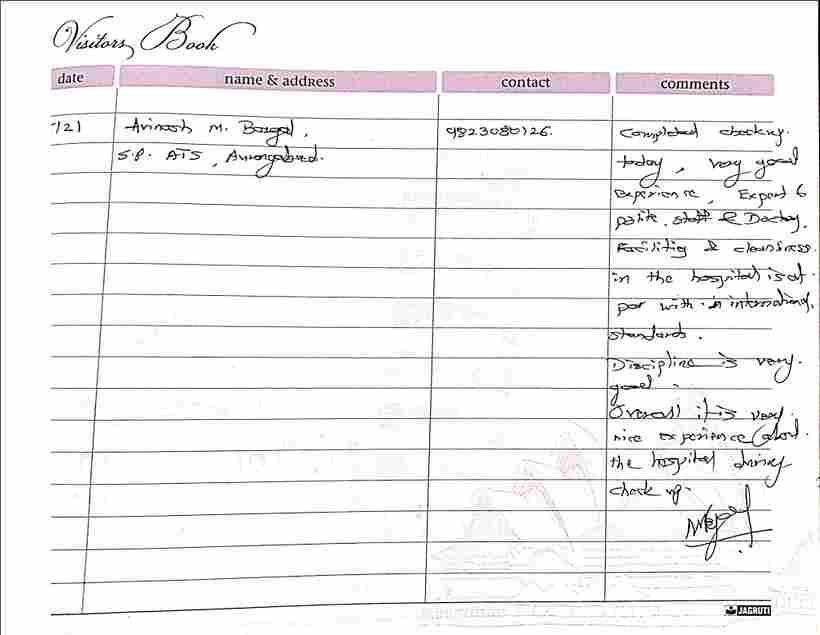 Visitors Book
date name & address contact comments
/121 Avinash M. Bargal, 9823080126. Completed checking.
S.P. ATS, Aurangabad. today, very good
Experience, Expert &
polite staff & Doctors.
Facility & cleanliness
in the hospital is at
par with international
standards.
Discipline is very
good.
Overall it is very
nice experience about
the hospital during
check up.
JAGRUTI